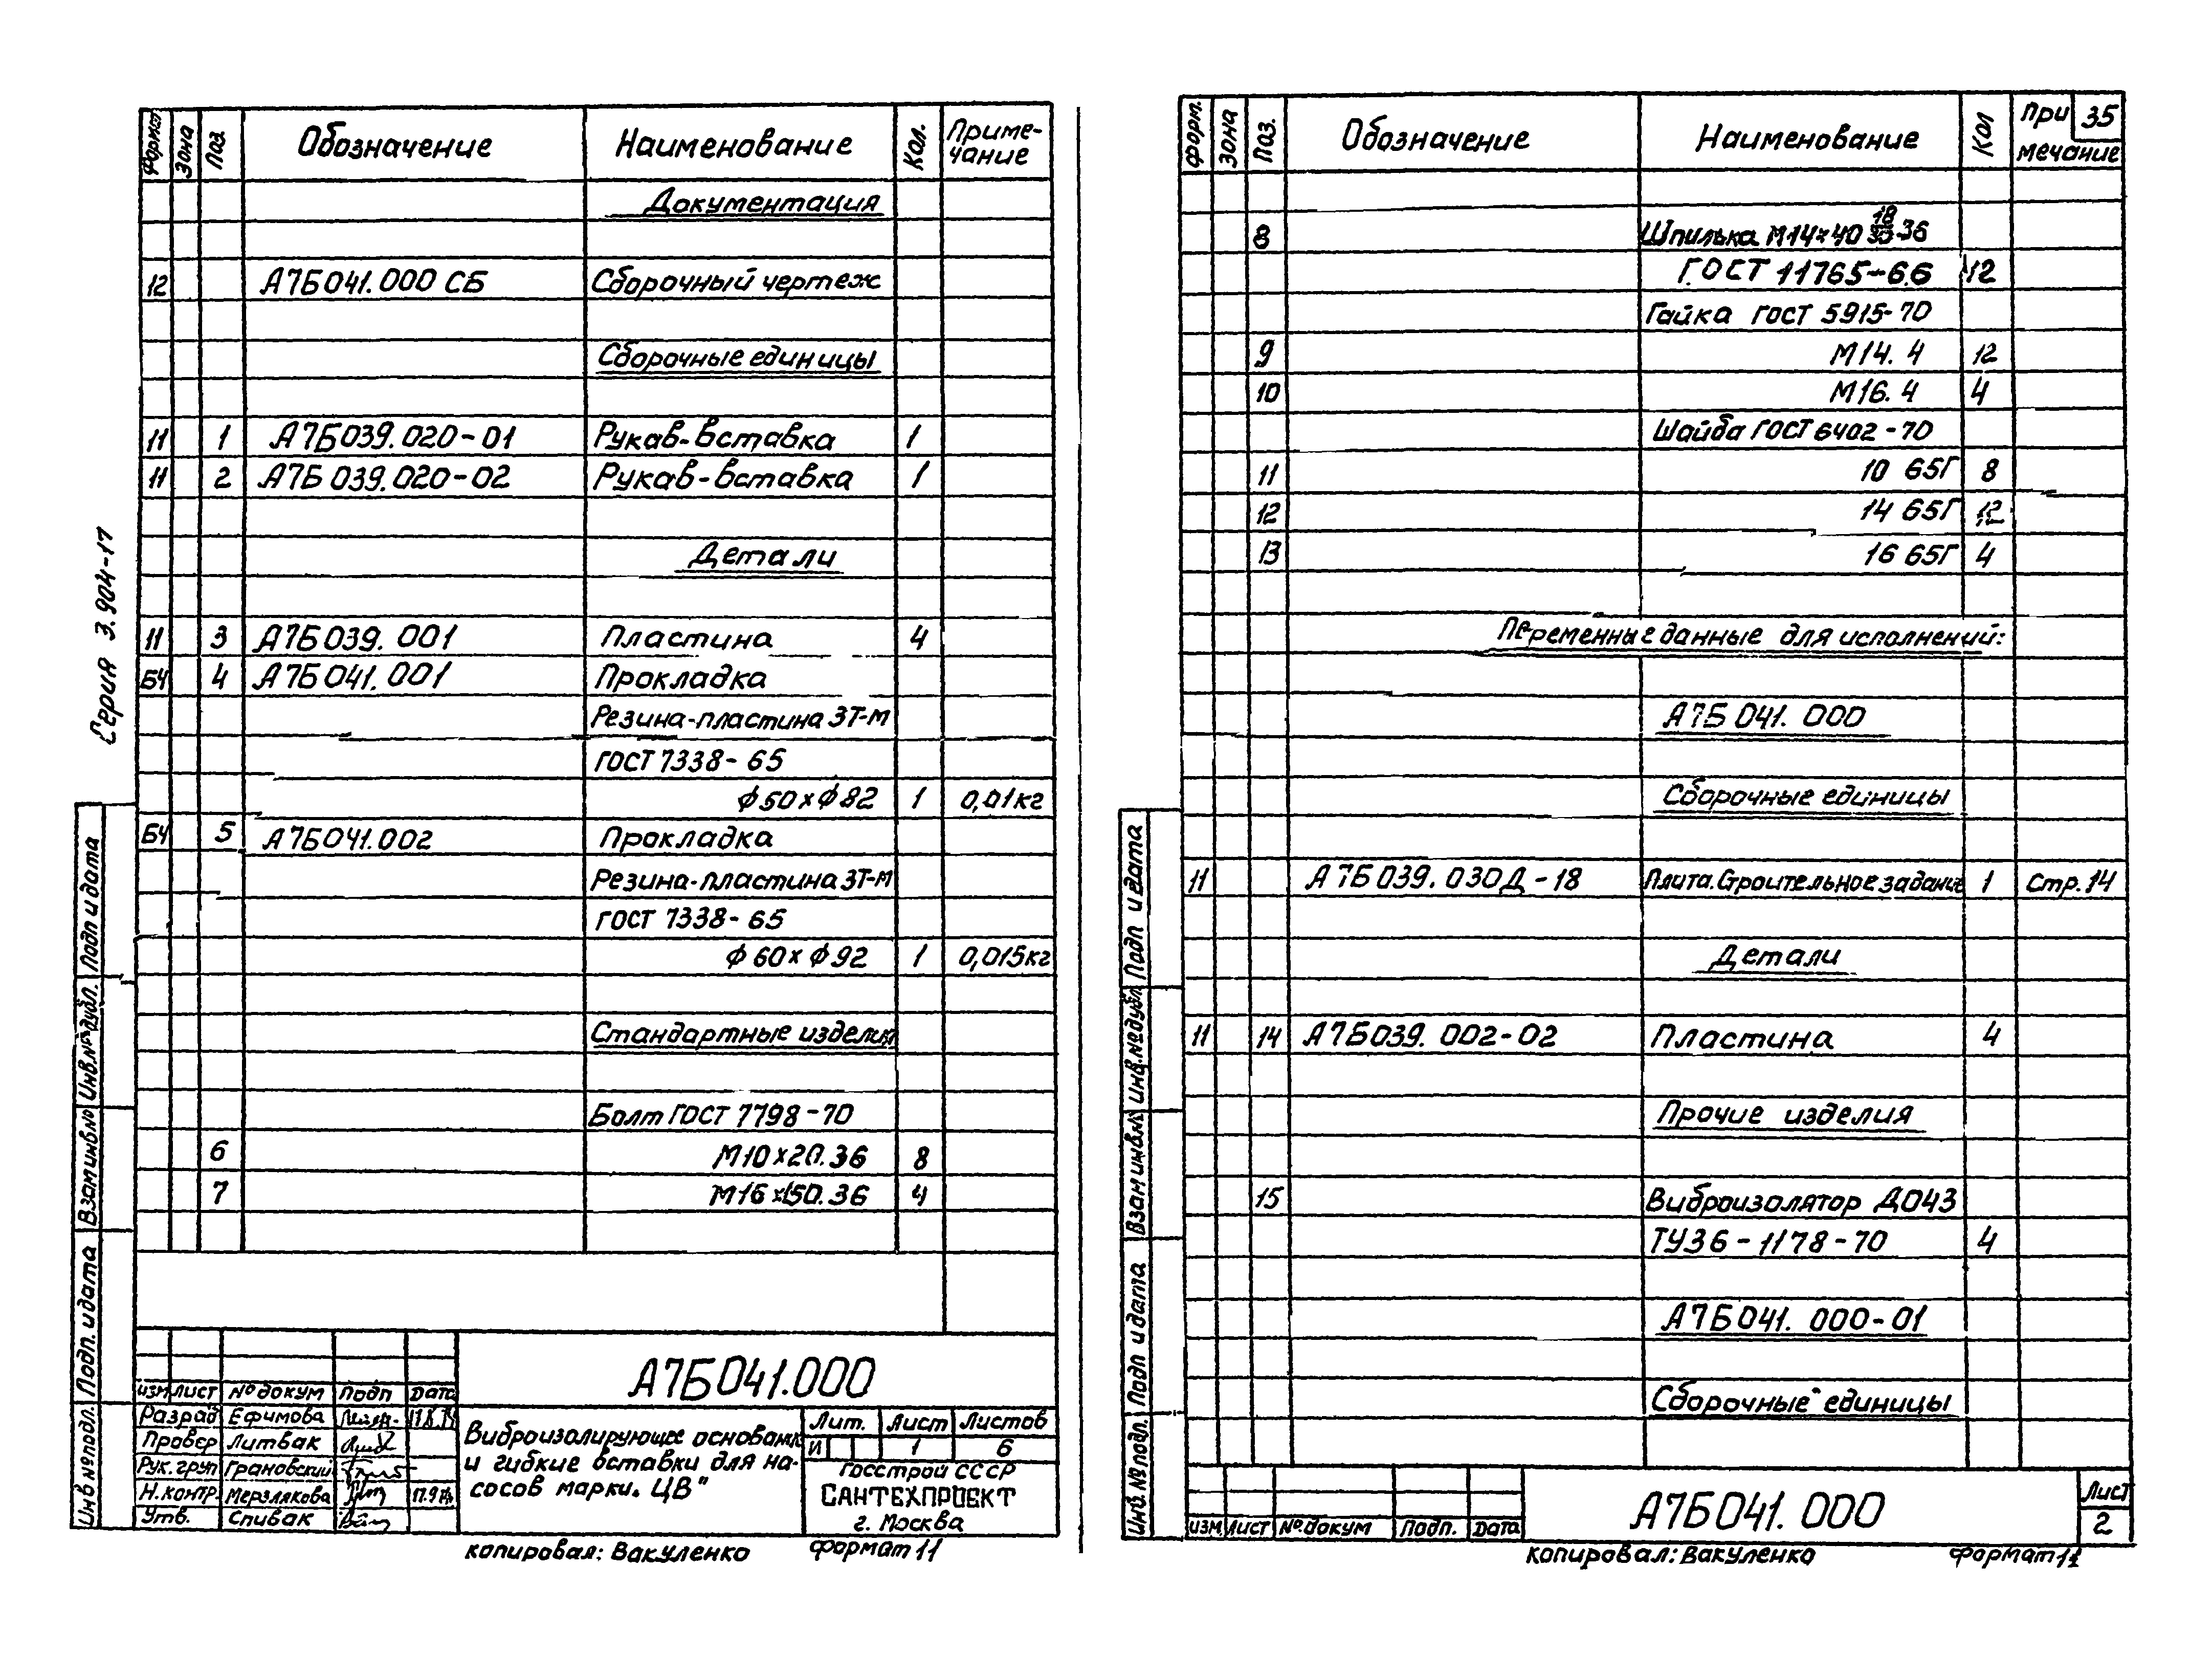 Серия 3.904-17
Формат Зона Поз. Обозначение Наименование Кол. Приме-
чание
Документация
12 А7Б041.000 СБ Сборочный чертеж
Сборочные единицы
11 1 А7Б039.020-01 Рукав-вставка 1
11 2 А7Б039.020-02 Рукав-вставка 1
Детали
11 3 А7Б039.001 Пластина 4
БЧ 4 А7Б041.001 Прокладка
Резина-пластина 3Т-М
ГОСТ 7338-65
ф50хф82 1 0,01кг
БЧ 5 А7Б041.002 Прокладка
Резина-пластина 3Т-М
ГОСТ 7338-65
ф60хф92 1 0,015кг
Стандартные изделия
Болт ГОСТ 7798-70
6 М10х20.36 8
7 М16х150.36 4
А7Б041.000
Изм Лист № докум Подп Дата
Разраб Ефимова
Провер Литвак
Рук. груп Грановский
Н.контр. Мерзлякова
Утв. Спивак
Виброизолирующее основание
и гибкие вставки для на-
сосов марки "ЦВ"
Лит. Лист Листов
И 1 6
Госстрой СССР
САНТЕХПРОЕКТ
г. Москва
копировал: Вакуленко формат 11
Инв № подл. Подп. и дата Взам инв № Инв. № дубл. Подп и дата
Форм. Зона Поз. Обозначение Наименование Кол При
мечание
35
8 Шпилька М14х40 18/30 .36
ГОСТ 11765-66 12
Гайка ГОСТ 5915-70
9 М14.4 12
10 М16.4 4
Шайба ГОСТ 6402-70
11 10 65Г 8
12 14 65Г 12
13 16 65Г 4
Переменные данные для исполнений:
А7Б041.000
Сборочные единицы
11 А7Б039.030Д-18 Плита. Строительное задание 1 Стр. 14
Детали
11 14 А7Б039.002-02 Пластина 4
Прочие изделия
15 Виброизолятор ДО43
ТУ36-1178-70 4
А7Б041.000-01
Сборочные единицы
Изм Лист № докум Подп. Дата
А7Б041.000
Лист
2
копировал: Вакуленко формат 11
Инв. № подл. Подп и дата Взам инв № Инв. № дубл Подп и дата